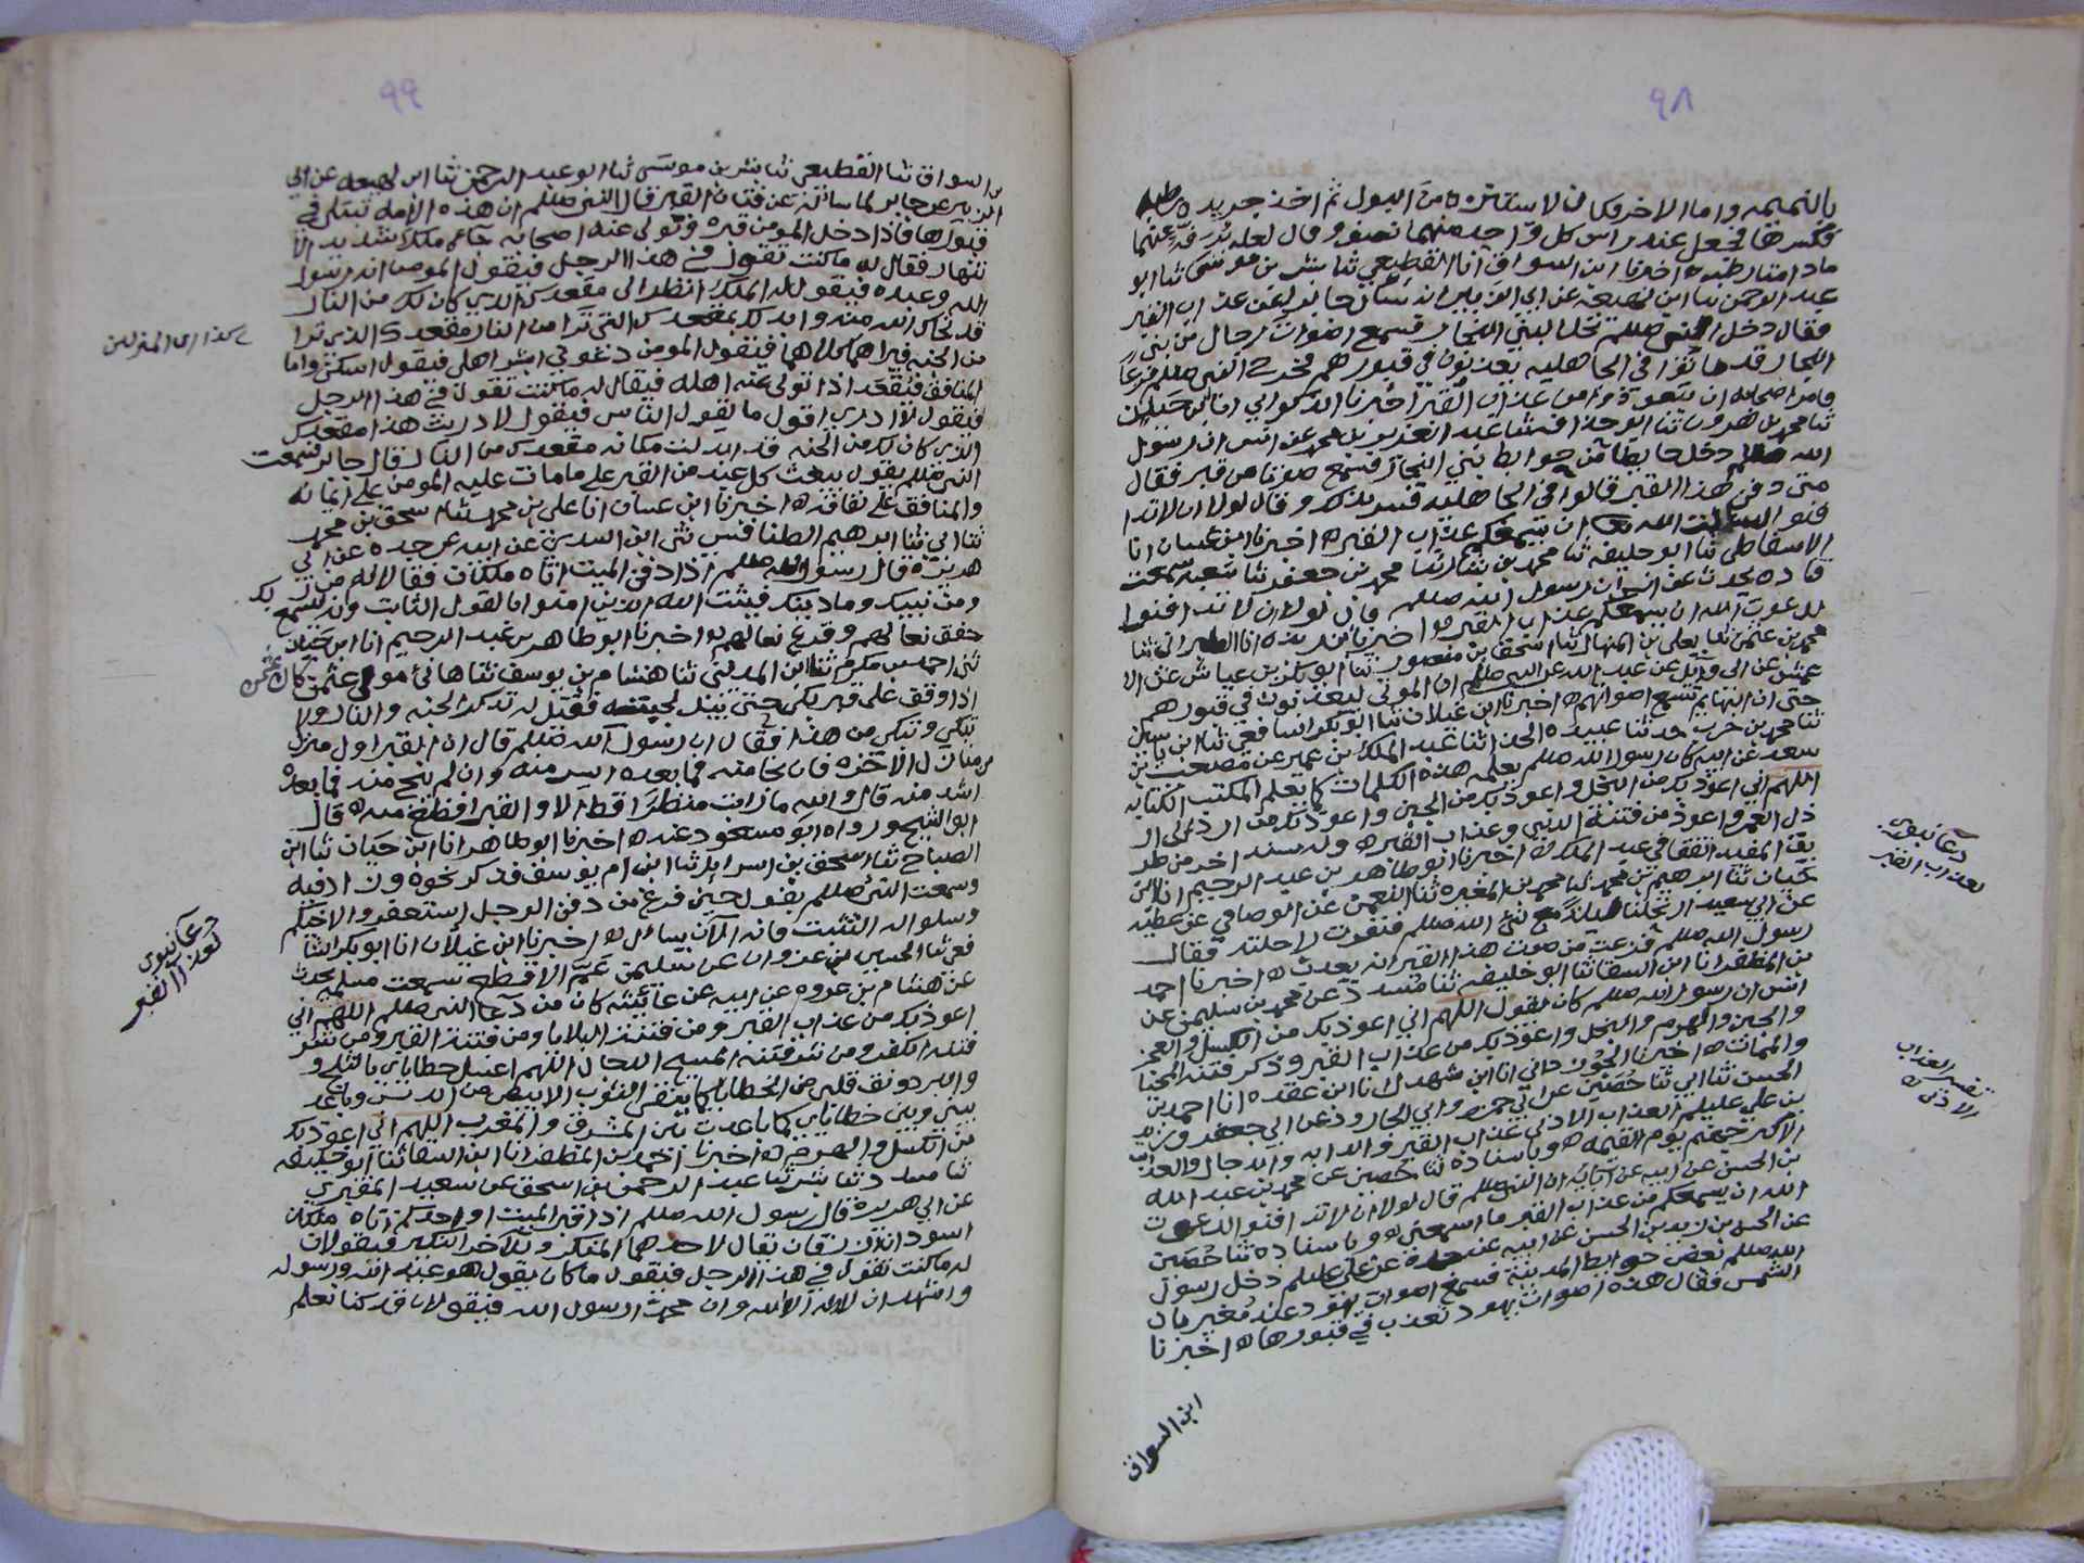 ٩٨
بالنميمه واما الاخر فكان لا يستتره من البول ثم اخذ جريده رطبه
فكسرها فجعل عند راس كل واحد منهما نصفا وقال لعله عنهما
ما دامتا رطبه اخبرنا ابن السواق انا القطيعي ثنا بشر بن موسى ثنا ابو
عبد الرحمن ثنا ابن لهيعه عن ابي الزبير انه سال جابرا عن عذاب القبر
فقال دخل النبي صللم نخلا لبني النجار فسمع اصوات رجال من بني
النجار قد ماتوا في الجاهليه يعذبون في قبورهم فخرج النبي صللم فزعا
وامر اصحابه ان يتعوذوا من عذاب القبر اخبرنا الذكواني انا ابن حيان
ثنا محمد بن هرون ثنا ابو حذافه ثنا عبد العزيز بن محمد عن انس ان رسول
الله صللم دخل حايطا من حوايط بني النجار فسمع صوتا من قبر فقال
متى دفن هذا القبر قالوا في الجاهليه فسر بذلك وقال لولا ان لا تدا
فنوا لسالت الله ان يسمعكم عذاب القبر اخبرنا ابن غسان انا
الاسفاطي ثنا ابو خليفه ثنا محمد بن بشار ثنا محمد بن جعفر ثنا شعبه سمعت
قتاده يحدث عن انس ان رسول الله صللم قال لولا ان لا تدافنوا
لدعوت الله ان يسمعكم عذاب القبر اخبرنا ابن ريذه انا الطبراني ثنا
محمد بن عثمن ثنا يعلى بن المنهال ثنا اسحق بن منصور ثنا ابو بكر بن عياش عن الا
عمش عن ابي وايل عن عبد الله عن النبي صللم ان الموتى ليعذبون في قبورهم
حتى ان البهايم تسمع اصواتهم اخبرنا ابن غيلان ثنا ابو بكر الشافعي ثنا ابن ياسين
ثنا محمد بن حرب حدثنا عبيده الحذا ثنا عبد الملك بن عمير عن مصعب بن
سعد عن ابيه كان رسول الله صللم يعلمه هذه الكلمات كما يعلم المكتب الكتابه
اللهم اني اعوذ بك من البخل واعوذ بك من الجبن واعوذ بك من ان ارد الى ار
ذل العمر واعوذ من فتنة الدنيا وعذاب القبر وله سند اخر من طر
يق المفيد اتفقا في عبد الملك اخبرنا ابو طاهر بن عبد الرحيم انا ابن
حيان ثنا ابرهيم بن محمد ثنا محمد بن المغيره ثنا النعمن عن الوصافي عن عطيه
عن ابي سعيد ارتحلنا مع نبي الله صللم فنفرت راحلته فقال
رسول الله صللم فزعت من صوت هذا القبر انه يعذب اخبرنا احمد
بن المظفر انا ابن السقا ثنا ابو خليفه ثنا مسدد عن محمد بن سليمن عن
انس ان رسول الله صللم كان يقول اللهم اني اعوذ بك من الكسل والعجز
والجبن والهرم والبخل واعوذ بك من عذاب القبر وذكر فتنة المحيا
والممات اخبرنا الجوزداني انا ابن شهدل انا ابن عقده انا احمد بن
الحسن ثنا ابي ثنا حصين عن ابي حمزه وابي الجارود عن ابي جعفر وزيد
بن علي عليلم العذاب الادنى عذاب القبر والدابه والدجال والعذاب
الاكبر جهنم يوم القيمه وباسناده ثنا حصين عن محمد بن عبد الله
بن الحسن عن ابيه عن ابائه ان النبي صللم قال لولا ان لا تدافنوا لدعوت
الله ان يسمعكم من عذاب القبر ما اسمعني وباسناده ثنا حصين
عن الحسن بن زيد بن الحسن عن ابيه عن جده عن علي عليلم دخل رسول
الله صللم بعض حوايط المدينة فسمع اصوات يهود عند مغيربان
الشمس فقال هذه اصوات يهود تعذب في قبورها اخبرنا
ابن السواق
دعا نبوي
لعذاب القبر
تفسير العذاب
الادنى
٩٩
بن السواق ثنا القطيعي ثنا بشر بن موسى ثنا ابو عبد الرحمن ثنا ابن لهيعه عن ابي
الزبير عن جابر لما سالته عن فتان القبر قال النبي صللم ان هذه الامه تبتلى في
قبورها فاذا دخل المومن قبره وتولى عنه اصحابه جاءه ملك شديد الا
نتهار فقال له ما كنت تقول في هذا الرجل فيقول المومن انه رسول
الله وعبده فيقول له الملك انظر الى مقعدك الذي كان لك من النار
قد نجاك الله منه وابدلك بمقعدك التي ترا من النار مقعدك الذي ترا
من الجنه فيراهما كلاهما فيقول المومن دعوني ابشر اهلي فيقول اسكن واما
المنافق فيقعد اذا تولى عنه اهله فيقال له ما كنت تقول في هذا الرجل
فيقول لا ادري اقول ما يقول الناس فيقول لا دريت هذا مقعدك
الذي كان لك من الجنه قد ابدلت مكانه مقعدك من النار قال جابر فسمعت
النبي صللم يقول يبعث كل عبد من القبر على ما مات عليه المومن على ايمانه
والمنافق على نفاقه اخبرنا ابن غسان انا علي بن محمد ثنا اسحق بن محمد
ثنا ابي ثنا ابرهيم الطنافسي ثنى ابن السدي عن ابيه عن جده عن ابي
هريره قال رسول الله صللم اذا دفن الميت اتاه ملكان فقالا له من ربك
ومن نبيك وما دينك فيثبت الله الذين امنوا بالقول الثابت وانه ليسمع
خفق نعالهم وقرع نعالهم اخبرنا ابو طاهر بن عبد الرحيم انا ابن حيان
ثنى احمد بن مكرم ثنا ابن المديني ثنا هشام بن يوسف ثنا هانئ مولى عثمن كان عثمن
اذا وقف على قبر بكى حتى يبتل لحيته فقيل له تذكر الجنه والنار ولا
تبكي وتبكي من هذا فقال ان رسول الله صللم قال ان القبر اول منزل
من منازل الاخره فان نجا منه فما بعده ايسر منه وان لم ينج منه فما بعده
اشد منه قال والله ما رايت منظرا قط الا والقبر افظع منه قال
ابو الشيخ ورواه ابو مسعود عنه اخبرنا ابو طاهر انا ابن حيان ثنا ابن
الصباح ثنا اسحق بن اسرايل ثنا ابن ام يوسف فذكر نحوه وزاد فيه
وسمعت النبي صللم يقول حين فرغ من دفن الرجل استغفروا لاخيكم
وسلوا له التثبت فانه الآن يسال اخبرنا ابن غيلان انا ابو بكر الشا
فعي ثنا الحسين بن عن سليمن عم الاقطع سمعت مسلمه يحدث
عن هشام بن عروه عن ابيه عن عائشه كان من دعا النبي صللم اللهم اني
اعوذ بك من عذاب القبر ومن فتنة البلايا ومن فتنة القبر ومن شر
فتنه الكفر ومن شر فتنه المسيح الدجال اللهم اغسل خطاياي بالثلج و
والبرد ونق قلبي من الخطايا كما ينقى الثوب الابيض من الدنس وباعد
بيني وبين خطاياي كما باعدت بين المشرق والمغرب اللهم اني اعوذ بك
من الكسل والهرم اخبرنا احمد بن المظفر انا ابن السقا ثنا ابو خليفه
ثنا مسدد ثنا بشر ثنا عبد الرحمن بن اسحق عن سعيد المقبري
عن ابي هريرة قال رسول الله صللم اذا قبر الميت او احدكم اتاه ملكان
اسودان ازرقان يقال لاحدهما المنكر وللآخر النكير فيقولان
له ما كنت تقول في هذا الرجل فيقول ما كان يقول هو عبد الله ورسوله
واشهد ان لا اله الا الله وان محمدا رسول الله فيقولان قد كنا نعلم
دعا نبوي
لعذاب القبر